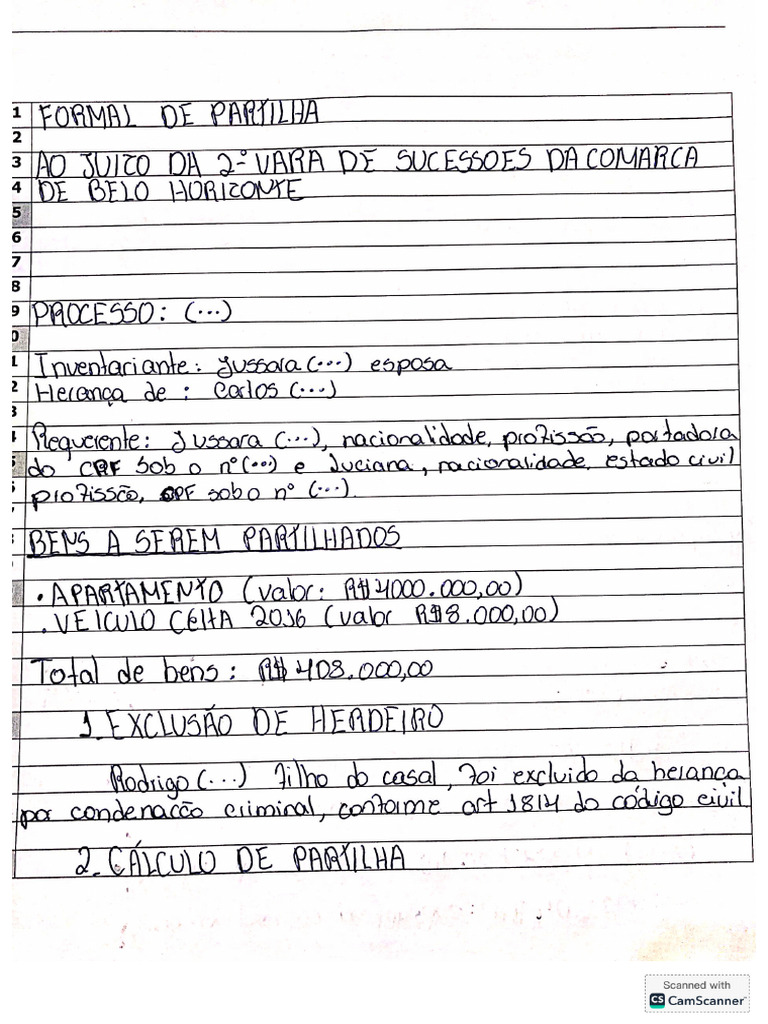 1 FORMAL DE PARTILHA
2
3 AO JUIZO DA 2ª VARA DE SUCESSOES DA COMARCA
4 DE BELO HORIZONTE
5
6
7
8
9 PROCESSO: (...)
0
1 Inventariante: Jussara (...) esposa
2 Herança de : Carlos (...)
3
4 Requerente: Jussara (...), nacionalidade, profissão, portadora
5 do CPF sob o nº (...) e Luciana, nacionalidade, estado civil
profissão, CPF sob o nº (...).
BENS A SEREM PARTILHADOS
• APARTAMENTO (valor: R$4000.000,00)
. VEICULO CELTA 2016 (valor R$8.000,00)
Total de bens: R$ 408.000,00
1. EXCLUSÃO DE HERDEIRO
Rodrigo (...) filho do casal, foi excluido da herança
por condenação criminal, conforme art 1814 do código civil
2. CÁLCULO DE PARTILHA
Scanned with
CS CamScanner